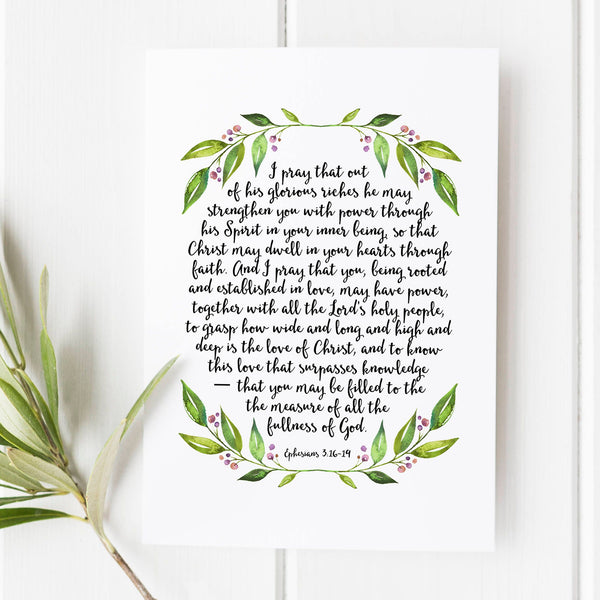 I pray that out
of his glorious riches he may
strengthen you with power through
his Spirit in your inner being, so that
Christ may dwell in your hearts through
faith. And I pray that you, being rooted
and established in love, may have power,
together with all the Lord's holy people,
to grasp how wide and long and high and
deep is the love of Christ, and to know
this love that surpasses knowledge
— that you may be filled to the
the measure of all the
fullness of God.
Ephesians 3:16-19